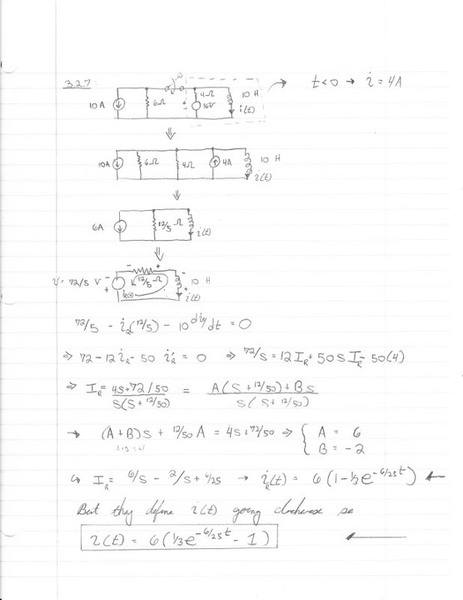 3.27
10A 6Ω 4Ω 16V 10 H i(t) → t<0 → i = 4A
⇓
10A 6Ω 4Ω 4A 10 H i(t)
⇓
6A 12/5 Ω i(t)
⇓
V= 72/5 V 12/5 Ω 10 H i(t)
72/5 - i_R(12/5) - 10 di_R/dt = 0
⇒ 72 - 12 i_R - 50 i_R' = 0 ⇒ 72/S = 12 I_R + 50 S I_R - 50(4)
⇒ I_R = 4S+72/50 / S(S+12/50) = A(S+12/50)+BS / S(S+12/50)
→ (A+B)S + 12/50 A = 4S+72/50 ⇒ { A = 6
B = -2
↳ I_R = 6/S - 2/S+6/25 → i_R(t) = 6(1-1/3e^-6/25t) ←
But they define i(t) going clockwise so
i(t) = 6(1/3e^-6/25t - 1) ←